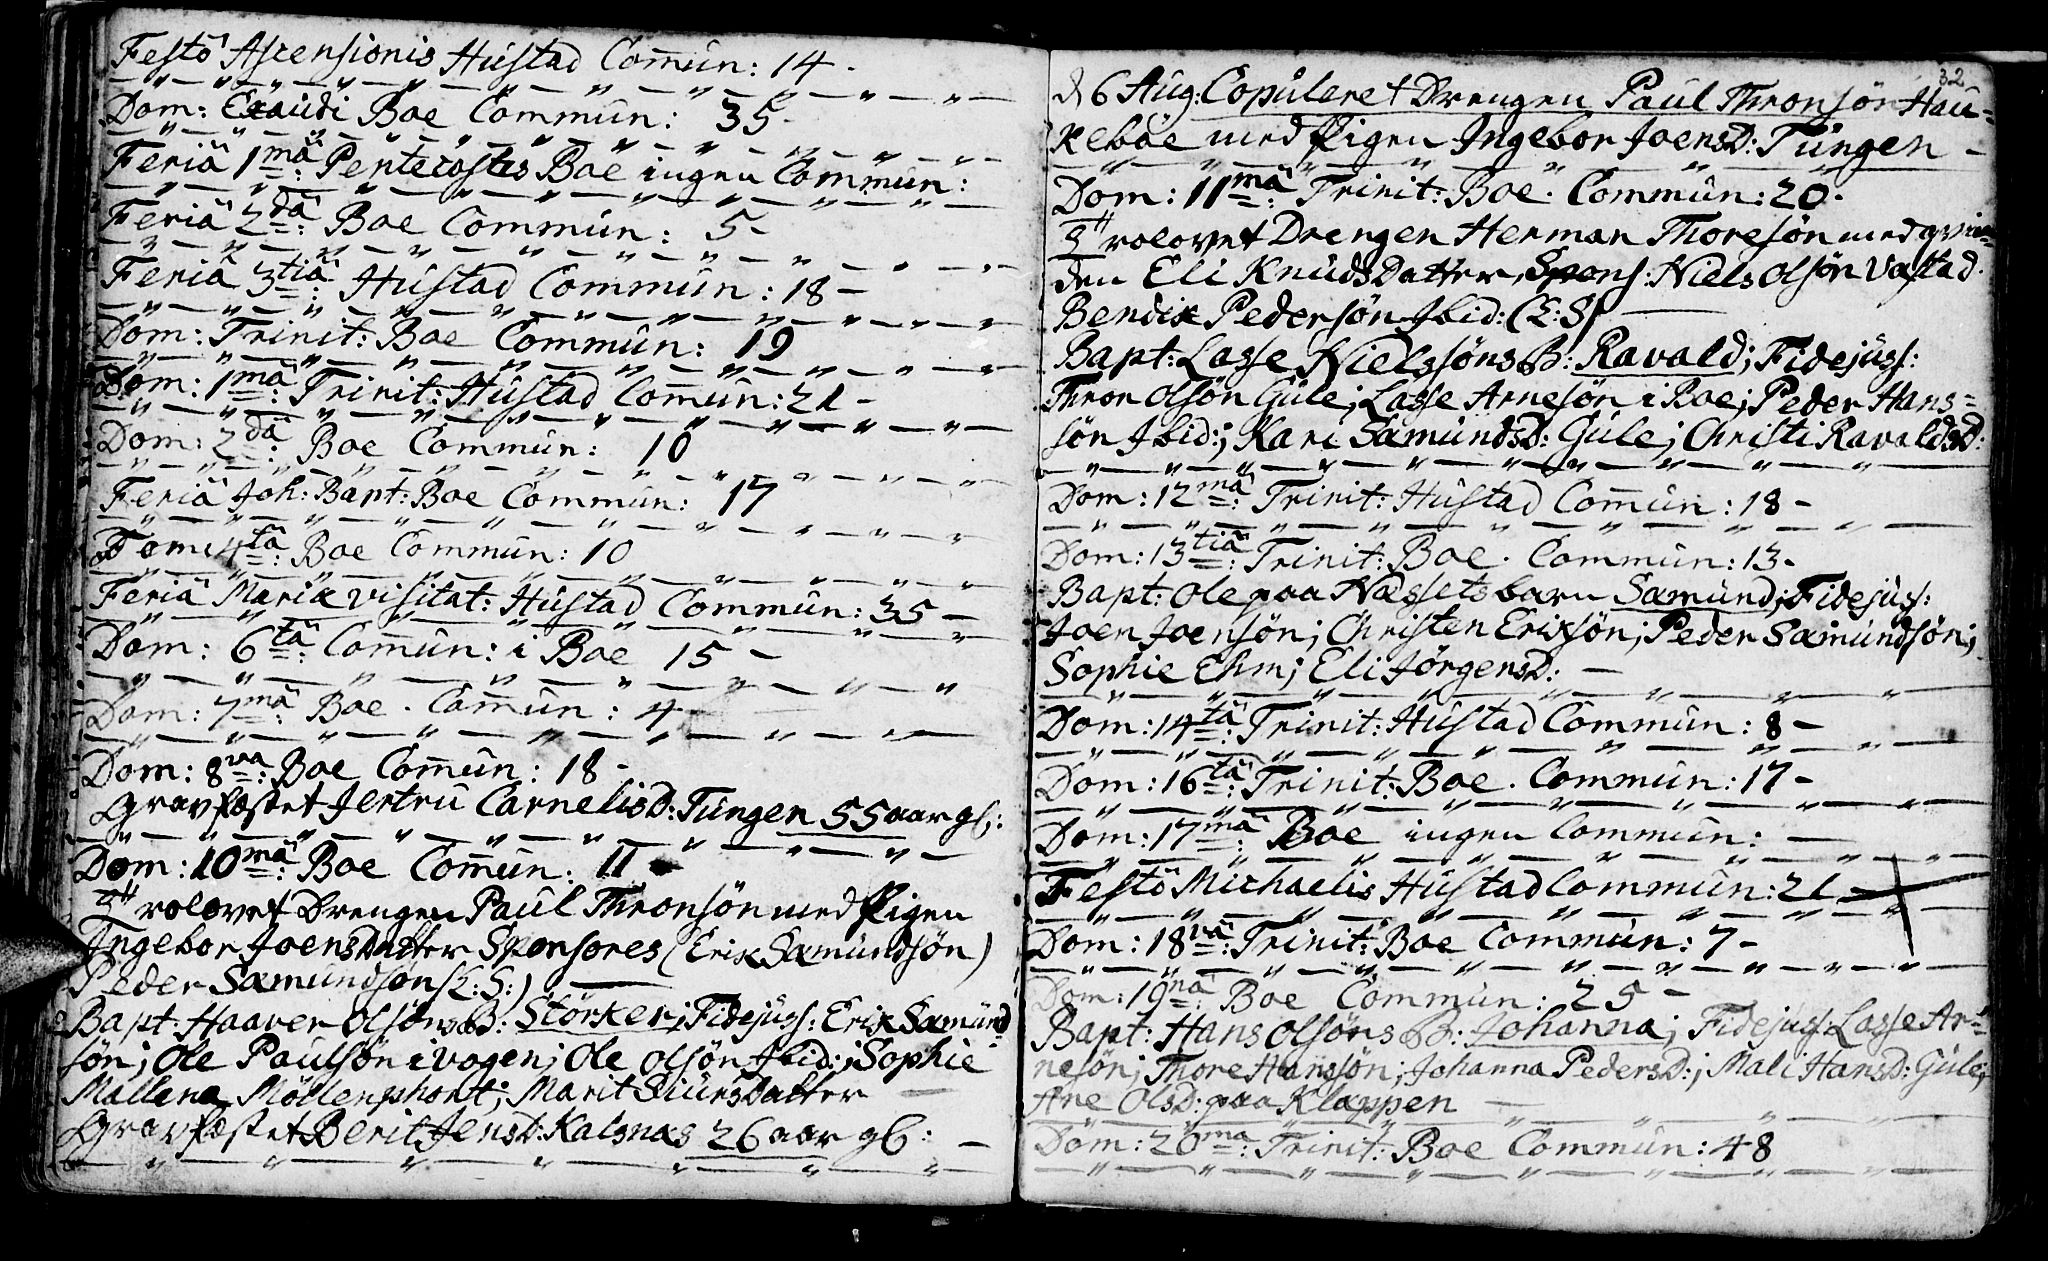 Festô Ascensionis Hústad Com̄ún: 14 -
Dom: Exaúdi Boe Commún: 35 -
Feriâ 1mâ: Pentecostes Boe ingen Commún:
Feriâ 2dâ: Boe Commún: 5 -
Feriâ 3tiâ: Hústad Commún: 18 -
Dom: Trinit: Boe Commún: 19
Dom: 1mâ: Trinit: Hústad Com̄ún: 21 -
Dom: 2dâ: Boe Commún: 10
Feriâ Joh: Bapt: Boe Commún: 17
Dom: 4tâ: Boe Commún: 10
Feriâ Mariæ visitat: Hústad Commún: 35 -
Dom: 6tâ: Com̄ún: i Boe 15 -
Dom: 7mâ: Boe. Com̄ún: 4 -
Dom: 8va: Boe Com̄ún: 18 -
Gravfæstet Jertrú CarnelisD: Túngen 55 aar gl:
Dom: 10mâ: Boe Com̄ún: 11
Trolovet Drengen Paúl Thronsön med Pigen
Ingebor JoensDatter Sponsores (Erik Sæmúndsön)
Peder Sæmúndsön (L:S:)
Bapt: Haaver Olsöns B: Störker; Fidejúss: Erik Sæmúnd
sön; Ole Paulsön i vogen; Ole Olsön Ibid:; Sophie
Mallena Möllenphort; Marit SiúrsDatter
Gravfæstet Berit JensD: Kalsnæs 26 aar gl: -
32
d 6 Aúg: Copúleret Drengen Paúl Thronsön Haú-
keböe med Pigen Ingebor JoensD: Túngen -
Dom: 11mâ: Trinit: Boe. Commún: 20.
Trolovet Drengen Herman Thoresön med qvin-
den Eli KnúdsDatter, Spons: Niels Olsön Vastad.
Bendix Pedersön Ibid: (L:S)
Bapt: Lasse Nielssöns B: Ravald; Fidejúss:
Thron Olsön Gúle; Lasse Arnesön i Boe; Peder Hans=
sön Ibid:; Kari SæmúndsD: Gúle; Christi RavaldsD:
Dom: 12mâ: Trinit: Hústad Com̄ún: 18 -
Dom: 13tiâ: Trinit: Boe. Commún: 13 -
Bapt: Ole paa Næssets barn Sæmúnd; Fidejúss:
Joen Joensön; Christen Eriksön; Peder Sæmúndsön;
Sophie Ehm; Eli JörgensD: -
Dom: 14tâ: Trinit: Hústad Commún: 8 -
Dom: 16tâ: Trinit: Boe. Commún: 17 -
Dom: 17mâ: Boe ingen Commún: -
Festô Michaelis Hústad Commún: 21 -
Dom: 18vâ: Trinit: Boe Commún: 7 -
Dom: 19nâ: Boe Commún: 25 -
Bapt: Hans Olsöns B: Johanna; Fidejúss: Lasse Ar=
nesön; Thore Hanssön; Johanna PedersD:; Mali HansD: Gúle;
Ane OlsD: paa Klappen -
Dom: 20ma: Trinit: Boe Commún: 48